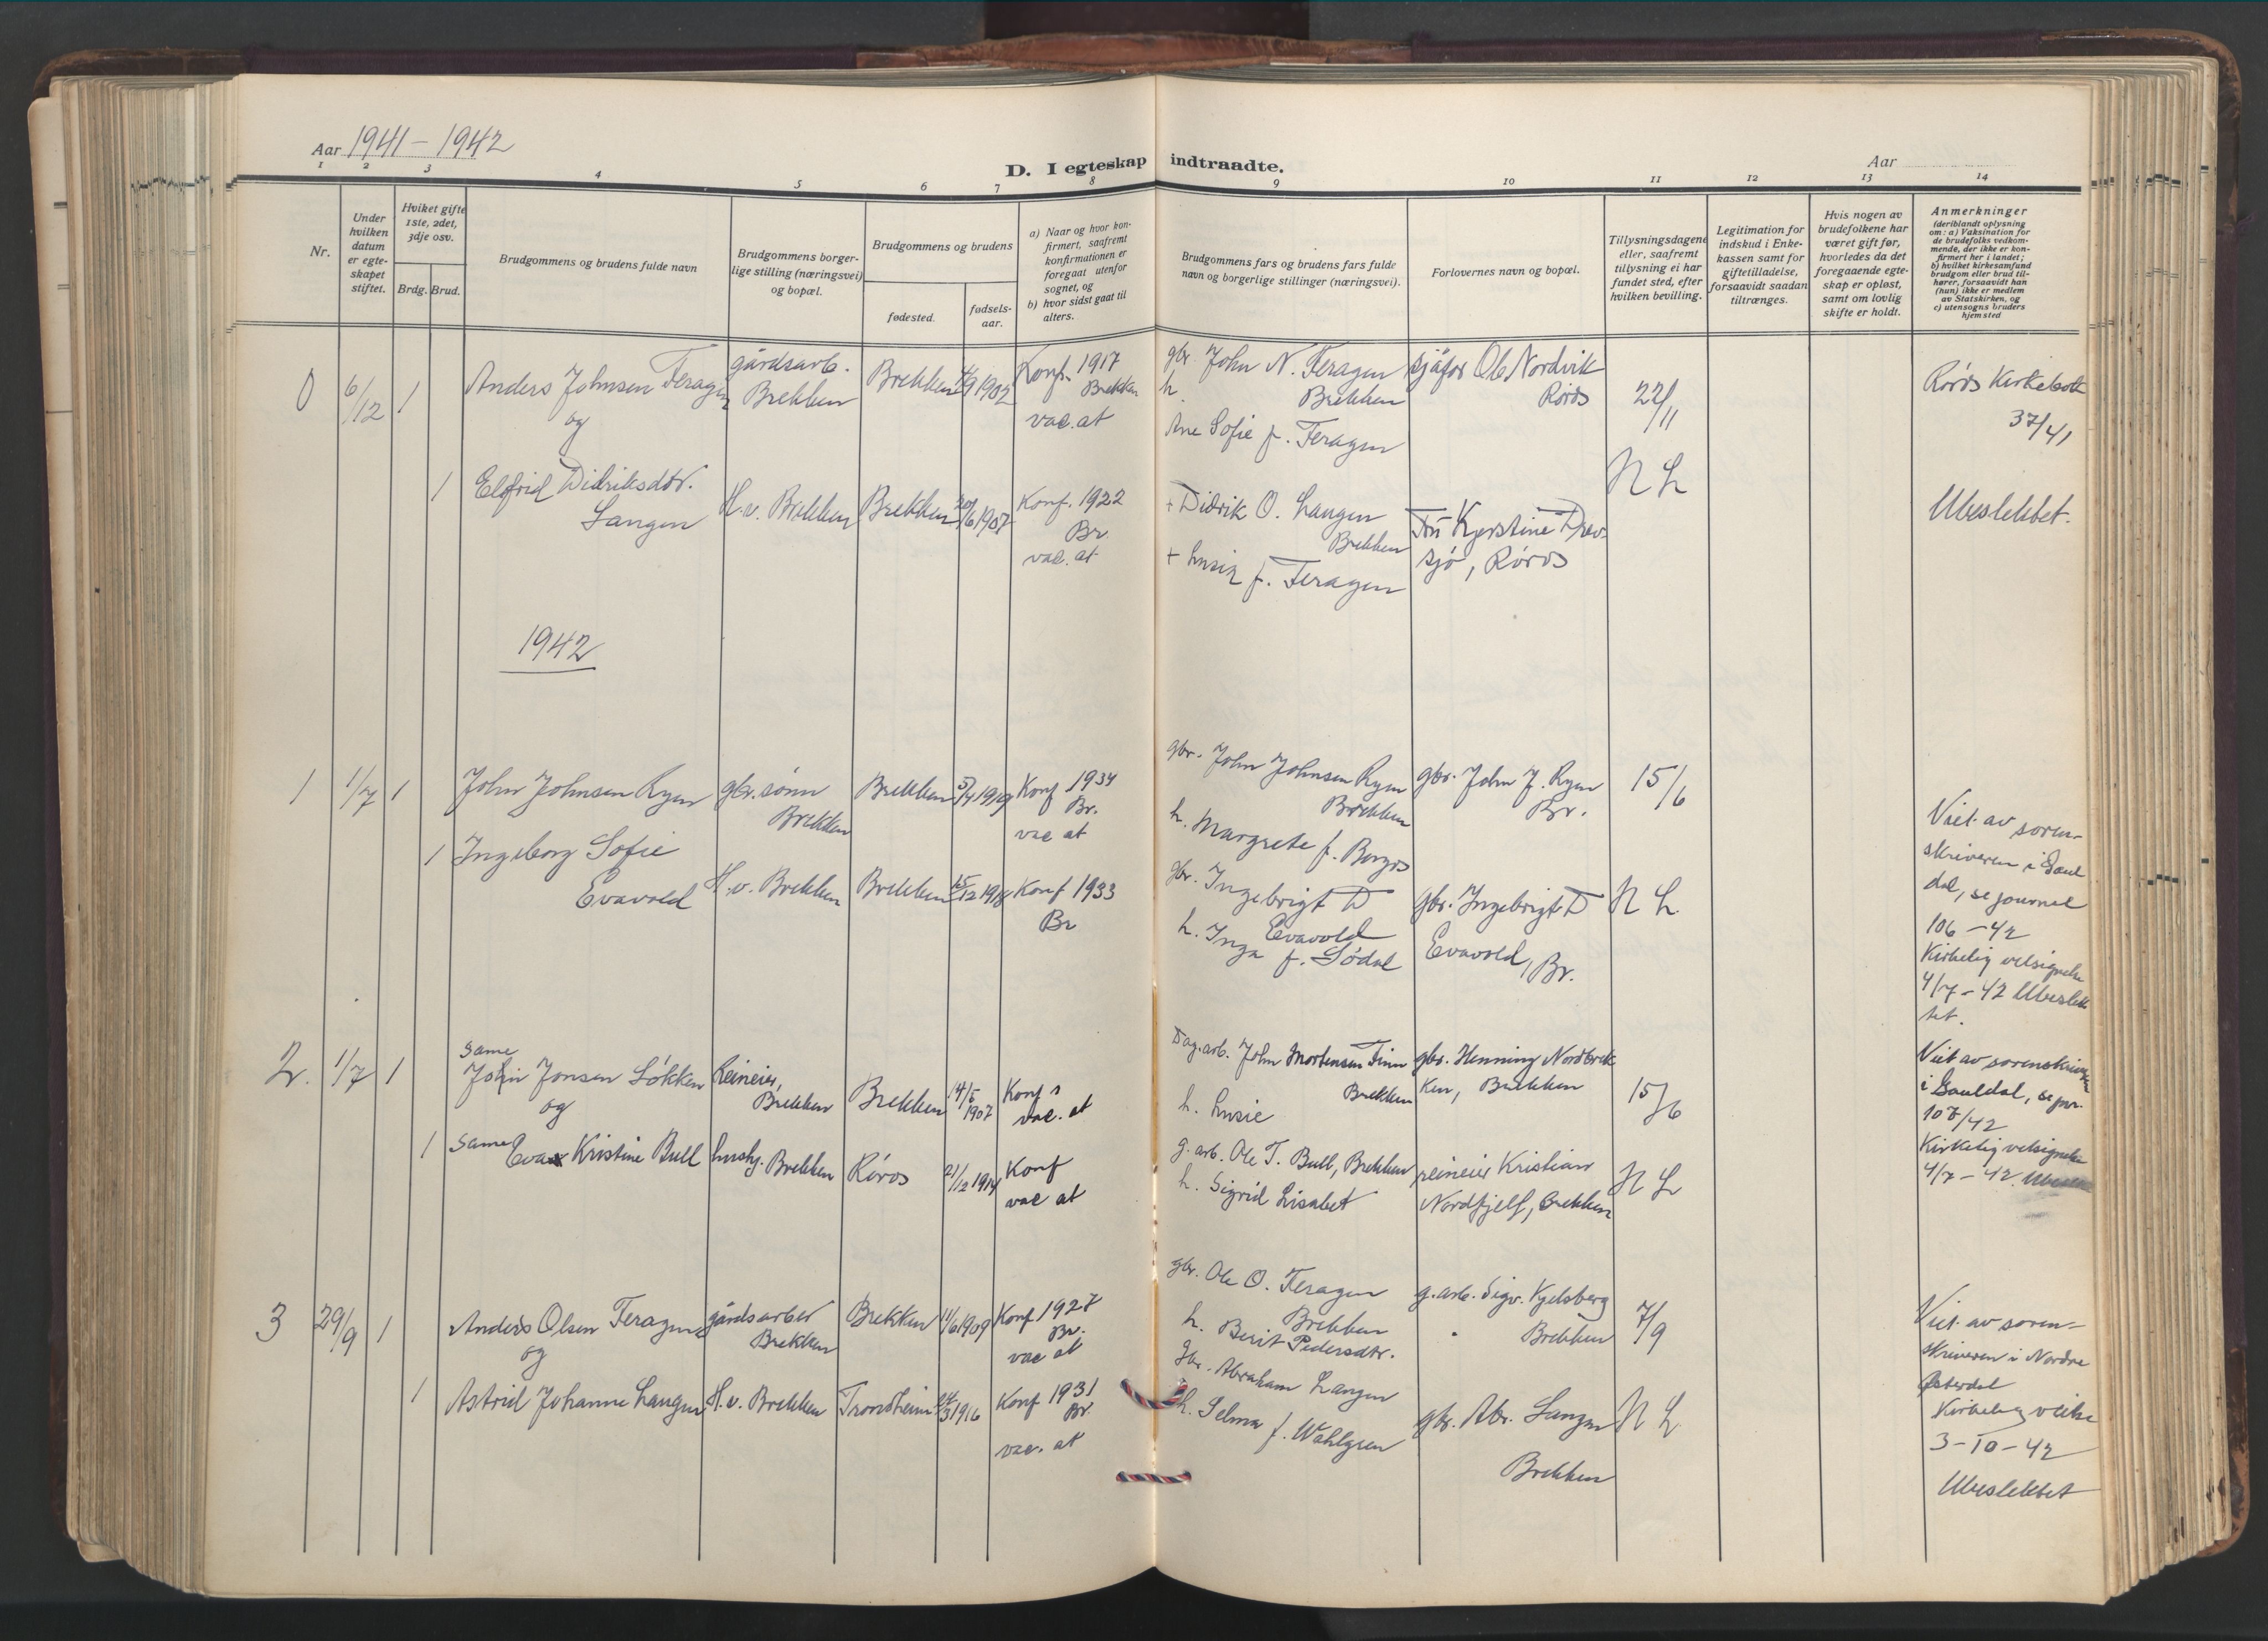 Aar 1941 – 1942
D. I egteskap indtraadte.
Aar
1 2 3 4 5 6 7 8 9 10 11 12 13 14
Nr.
Under hvilken datum er egte-skapet stiftet.
Hviket gifte 1ste, 2det, 3dje osv.
Brdg. Brud.
Brudgommens og brudens fulde navn
Brudgommens borger-
lige stilling (næringsvei)
og bopæl.
Brudgommens og brudens
fødested.
fødsels-
aar.
a) Naar og hvor kon-
firmert, saafremt
konfirmationen er
foregaat utenfor
sognet, og
b) hvor sidst gaat til
alters.
Brudgommens fars og brudens fars fulde
navn og borgerlige stillinger (næringsvei).
Forlovernes navn og bopæl.
Tillysningsdagene
eller, saafremt
tillysning ei har
fundet sted, efter
hvilken bevilling.
Legitimation for
indskud i Enke-
kassen samt for
giftetilladelse,
forsaavidt saadan
tiltrænges.
Hvis nogen av
brudefolkene har
været gift før,
hvorledes da det
foregaaende egte-
skap er opløst,
samt om lovlig
skifte er holdt.
Anmerkninger
(deriblandt oplysning
om: a) Vaksination for
de brudefolks vedkom-
mende, der ikke er kon-
firmert her i landet;
b) hvilket kirkesamfund
brudgom eller brud til-
hører, forsaavidt han
(hun) ikke er medlem
av Statskirken, og
c) utensogns bruders
hjemsted
0 6/12 1
Anders Johnsen Feragen
og
gårdsarb.
Brekken
Brekken
4/9 1902
Konf. 1917
Brekken
vac. at
gbr. John N. Feragen
h. Brekken
Ane Sofie f. Feragen
sjåfør Ole Nordvik
Røros
22/11
Røros Kirkebok
37/41
1
Elfrid Didriksdtr.
Langen
H.v. Brekken
Brekken
20/6 1907
Konf. 1922
Br.
vac. at
+ Didrik O. Langen
Brekken
+ Lusie f. Feragen
Fru Kjerstine Drev-
sjø, Røros
N L
Ubeslektet.
1942
1 1/7 1
John Johnsen Ryen
gbr. sønn
Brekken
Brekken
5/4 1919
Konf 1934
Br.
vac at
gbr. John Johnsen Ryen
Brekken
h. Margrete f. Borgos
gbr. John J. Ryen
Br.
15/6
1
Ingeborg Sofie
Evavold
H.v. Brekken
Brekken
15/12 1918
Konf 1933
Br
gbr. Ingebrigt D
Evavold
h. Inga f. Sødal
gbr. Ingebrigt D
Evavold, Br.
N L.
Viet av soren-
skriveren i Gaul
dal, se journal
106 – 42
Kirkelig velsignelse
4/7 – 42 Ubeslek
tet.
2. 1/7 1
same
John Jonsen Løkken
og
Reineier,
Brekken
Brekken
14/5
1907
Konf
vac. at
Dag.arb. John Mortensen Finn
Brekken
h. Lusie
gbr. Henning Nordbrek
ken, Brekken
15/6
1
same Eva Kristine Bull
hushj. Brekken
Røros
21/12 1914
Konf
vac at
g. arb. Ole T. Bull, Brekken
h. Sigrid Lisabet
reineier Kristian
Nordfjell, Brekken
N L
Viet av sorenskriveren
i Gauldal, se jour.
107/42
Kirkelig velsignelse
4/7 – 42.
3 29/9 1
Anders Olsen Feragen
og
gårdsarber
Brekken
Brekken
11/6 1909
Konf 1927
Br.
vac at
gbr. Ole O. Feragen
Brekken
h. Berit Pedersdtr.
g.arb. Sigv. Kjelsberg
Brekken
7/9
1
Astrid Johanne Langen
H.v. Brekken
Trondheim
24/3 1916
Konf 1931
Br.
vac. at
gbr. Abraham Langen
h. Selma f. Wahlgren
gbr. Abr. Langen
Brekken
N L.
Viet av soren-
skriveren i Nordre
Østerdal
Kirkelig vielse
3 – 10 – 42
Ubeslektet